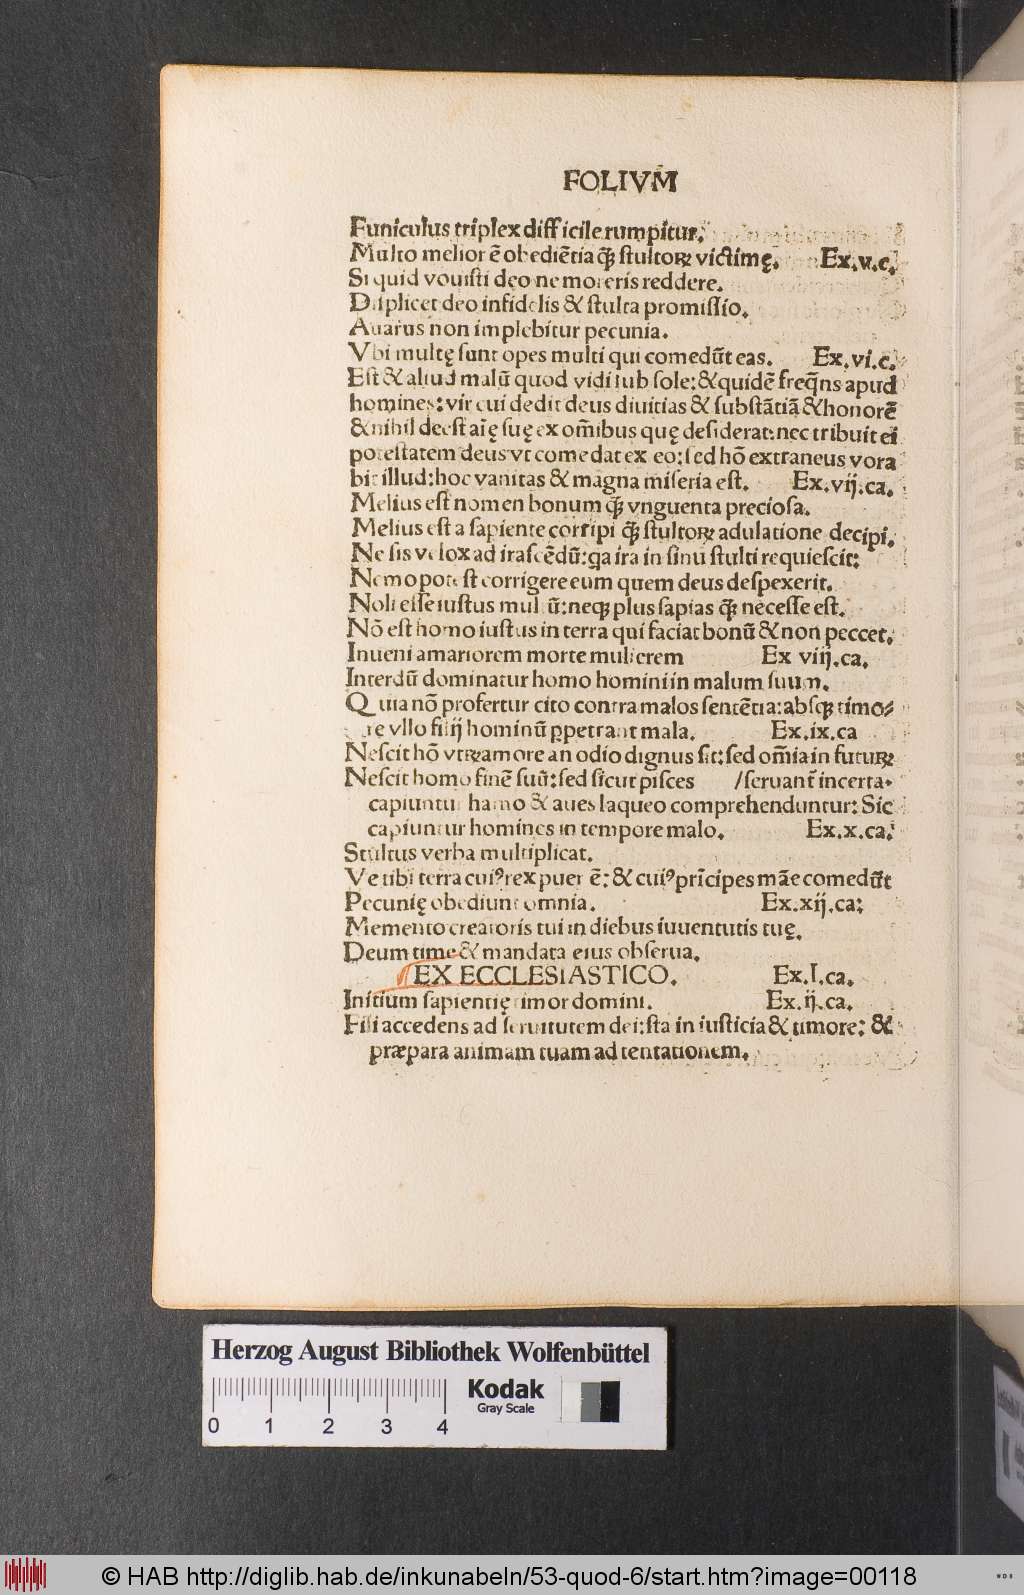 FOLIVM
Funiculus triplex difficile rumpitur.
Multo melior ē obediētia ꝙ̄ stultoꝝ victimę. Ex.v.c.
Si quid vouisti deo ne moreris reddere.
Displicet deo infidelis & stulta promissio.
Auarus non implebitur pecunia.
Vbi multę sunt opes multi qui comedūt eas. Ex.vi.c.
Est & aliud malū quod vidi sub sole: & quidē freq̄ns apud
homines: vir cui dedit deus diuitias & substātiā & honorē
& nihil deest aīę suę ex om̄ibus quę desiderat: nec tribuit ei
potestatem deus vt comedat ex eo: sed hō extraneus vora
bit illud: hoc vanitas & magna miseria est. Ex.vij.ca.
Melius est nomen bonum ꝙ̄ vnguenta preciosa.
Melius est a sapiente corripi ꝙ̄ stultoꝝ adulatione decipi.
Ne sis velox ad irascēdū: ꝗa ira in sinu stulti requiescit:
Nemo potest corrigere eum quem deus despexerit.
Noli esse iustus multū: neqꝫ plus sapias ꝙ̄ necesse est.
Nō est homo iustus in terra qui faciat bonū & non peccet.
Inueni amariorem morte mulierem Ex viij.ca.
Interdū dominatur homo homini in malum suum.
Quia nō profertur cito contra malos sentētia: absqꝫ timo⸗
re vllo filij hominū ꝑpetrant mala. Ex.ix.ca
Nescit hō vtꝝ amore an odio dignus sit: sed om̄ia in futuꝝ
Nescit homo finē suū: sed sicut pisces /seruant̄ incerta.
capiuntur hamo & aues laqueo comprehenduntur: Sic
capiuntur homines in tempore malo. Ex.x.ca.
Stultus verba multiplicat.
Ve tibi terra cuiꝰ rex puer ē: & cuiꝰ prīcipes māe comedūt
Pecunię obediunt omnia. Ex.xij.ca:
Memento creatoris tui in diebus iuuentutis tuę.
Deum time & mandata eius obserua.
¶ EX ECCLESIASTICO. Ex.I.ca.
Initium sapientię timor domini. Ex.ij.ca.
Fili accedens ad seruitutem dei: sta in iusticia & timore: &
præpara animam tuam ad tentationem.
Herzog August Bibliothek Wolfenbüttel
Kodak
Gray Scale
0 1 2 3 4
© HAB http://diglib.hab.de/inkunabeln/53-quod-6/start.htm?image=00118